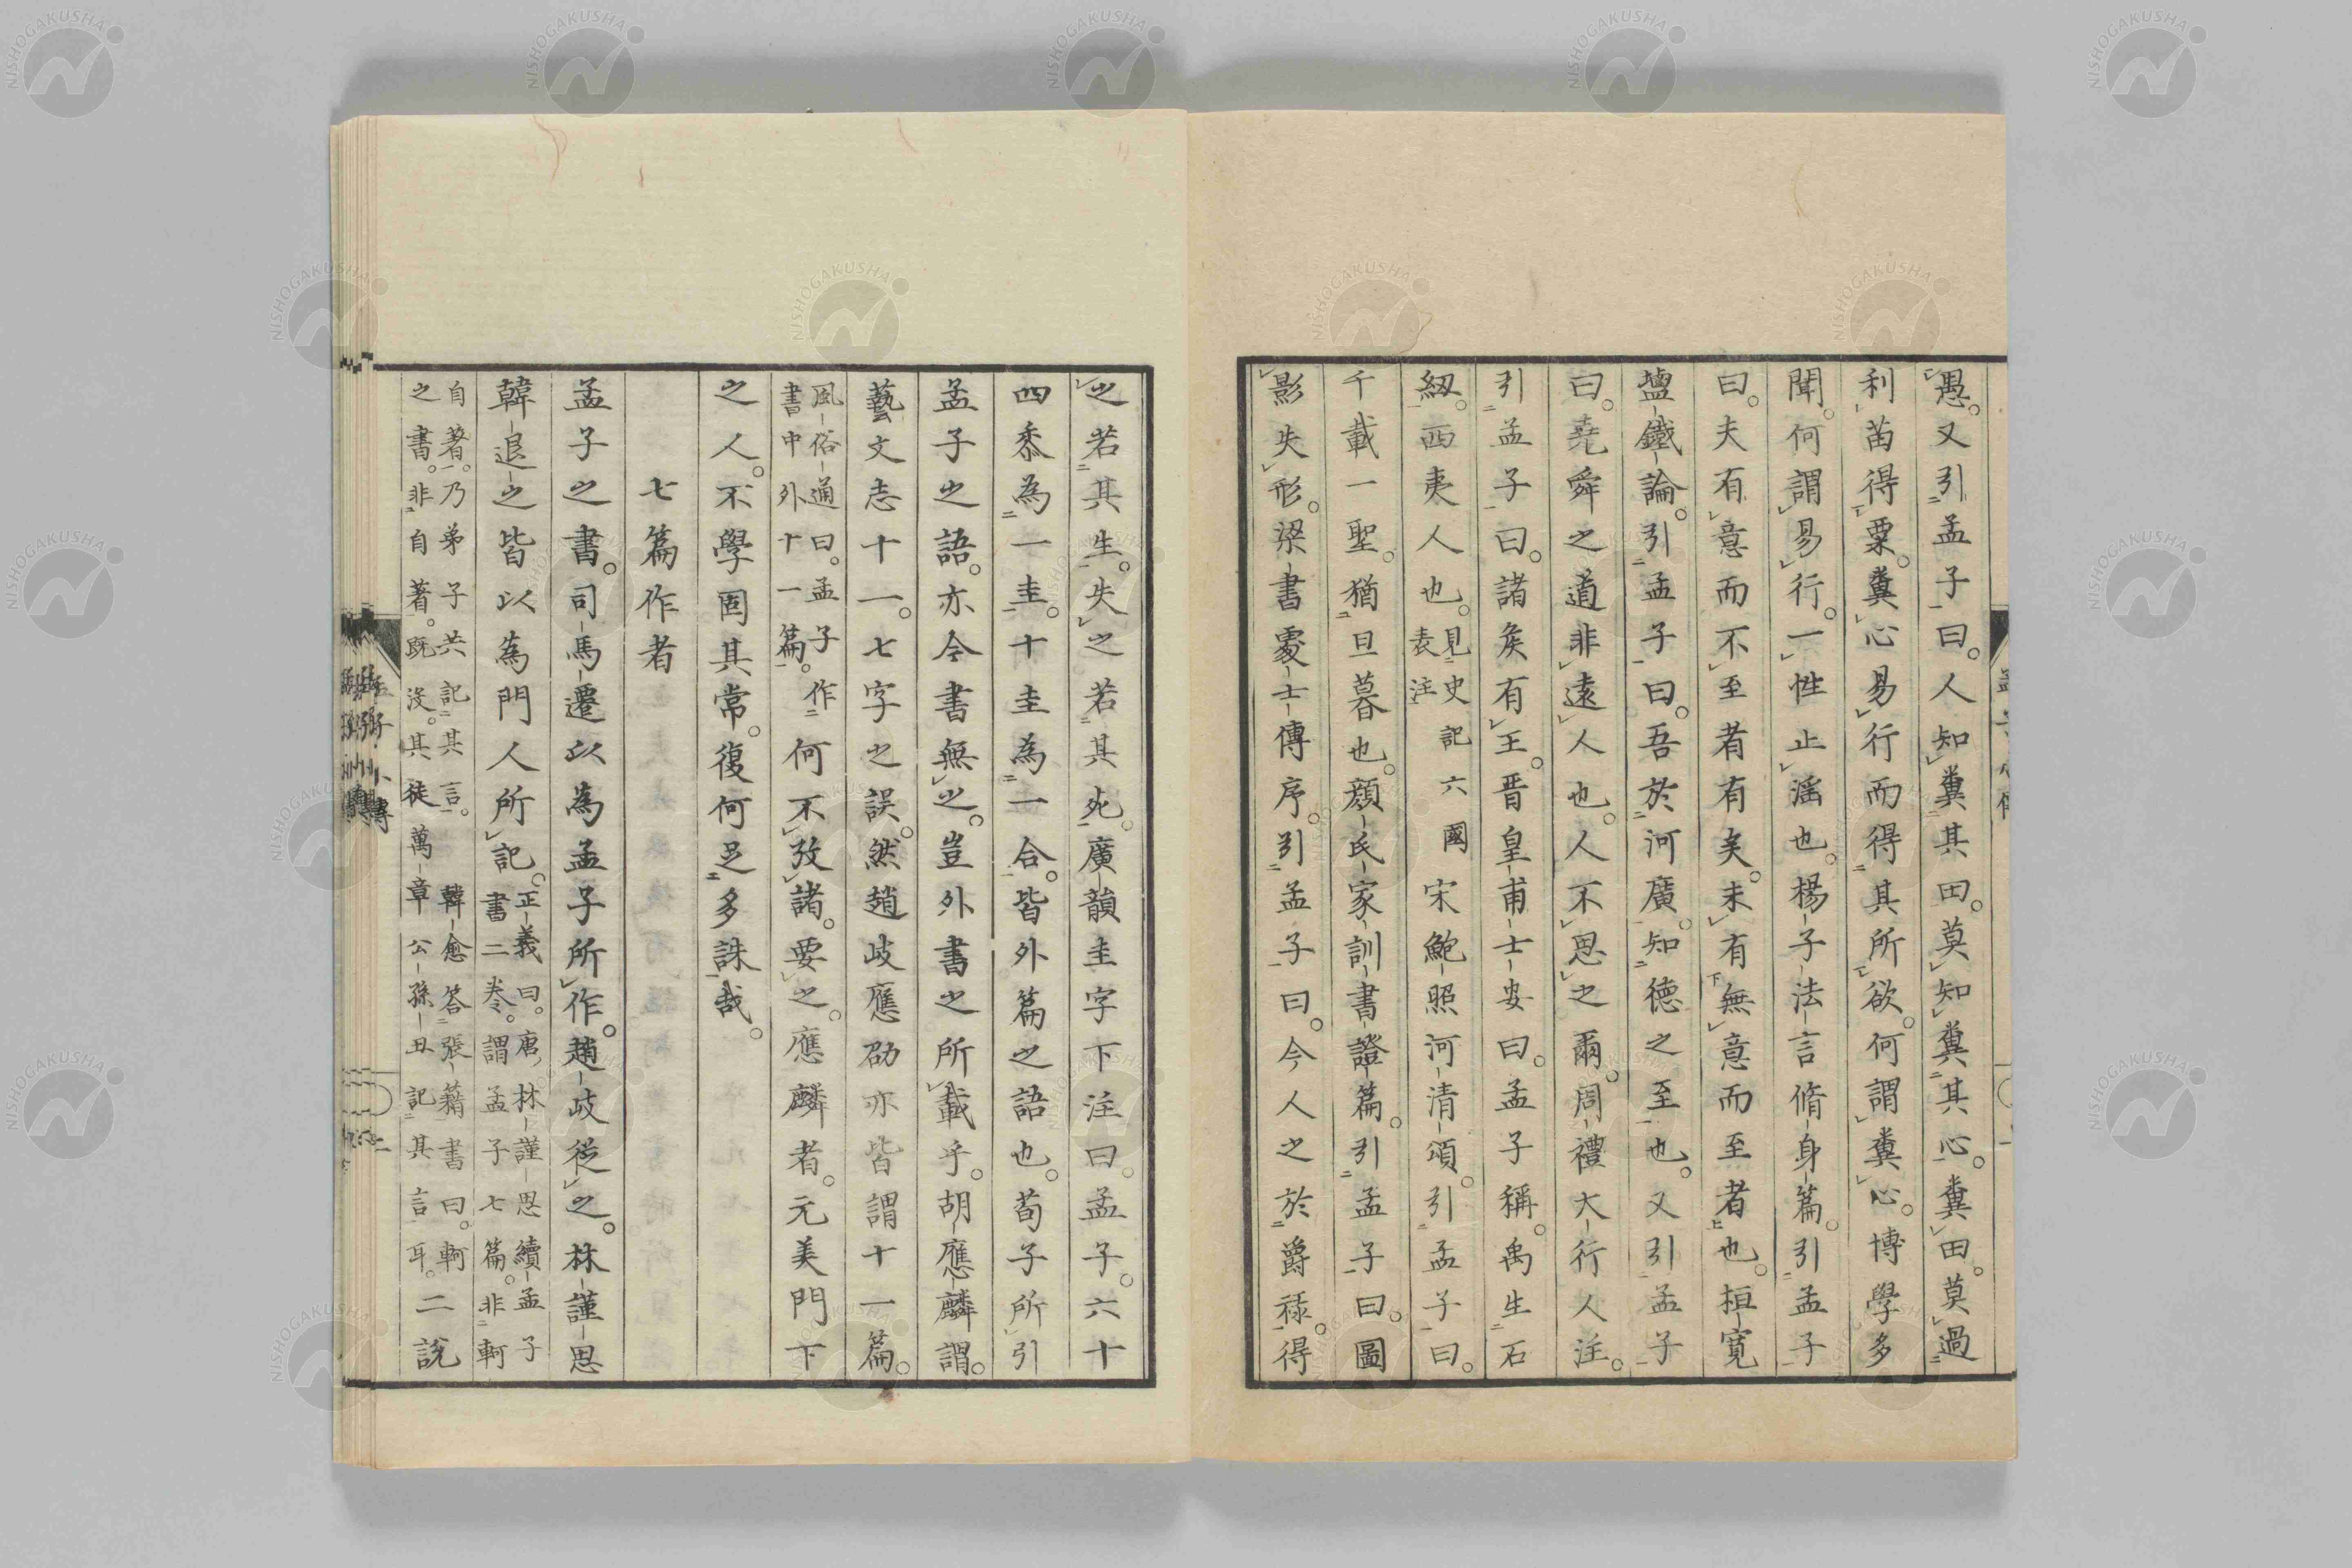 愚。又引孟子曰。人知糞其田。莫知糞其心。糞田。莫過
利苗得粟。糞心易行而得其所欲。何謂糞心。博學多
聞。何謂易行。一性止滛也。楊子法言脩身篇。引孟子
曰。夫有意而不至者有矣。未有無意而至者也。桓寛
塩鐵論。引孟子曰。吾於河廣。知德之至也。又引孟子
曰。堯舜之道非遠人也。人不思之爾。周禮大行人注。
引孟子曰。諸矦有王。晋皇甫士安曰。孟子稱。禹生石
紐。西夷人也。見史記六國表注宋鮑照河清頌。引孟子曰。
千載一聖。猶旦暮也。顔氏家訓書證篇。引孟子曰。圖
影失形。梁書處士傳序。引孟子曰。今人之於爵禄。得
之若其生。失之若其死。廣韻圭字下注曰。孟子。六十
四黍為一圭。十圭為一合。皆外篇之語也。荀子所引
孟子之語。亦今書無之。豈外書之所載乎。胡應麟謂。
藝文志十一。七字之誤。然趙岐應劭亦皆謂十一篇。
風俗通曰。孟子作書中外十一篇。何不攷諸。要之。應麟者。元美門下
之人。不學固其常。復何足多誅哉。
七篇作者
孟子之書。司馬遷以為孟子所作。趙岐從之。林謹思
韓退之皆以為門人所記。正義曰。唐林謹思續孟子書二卷。謂孟子七篇。非軻
自著。乃弟子共記其言。韓愈答張籍書曰。軻之書。非自著。既沒。其徒萬章公孫丑記其言耳。二說
孟子小傳